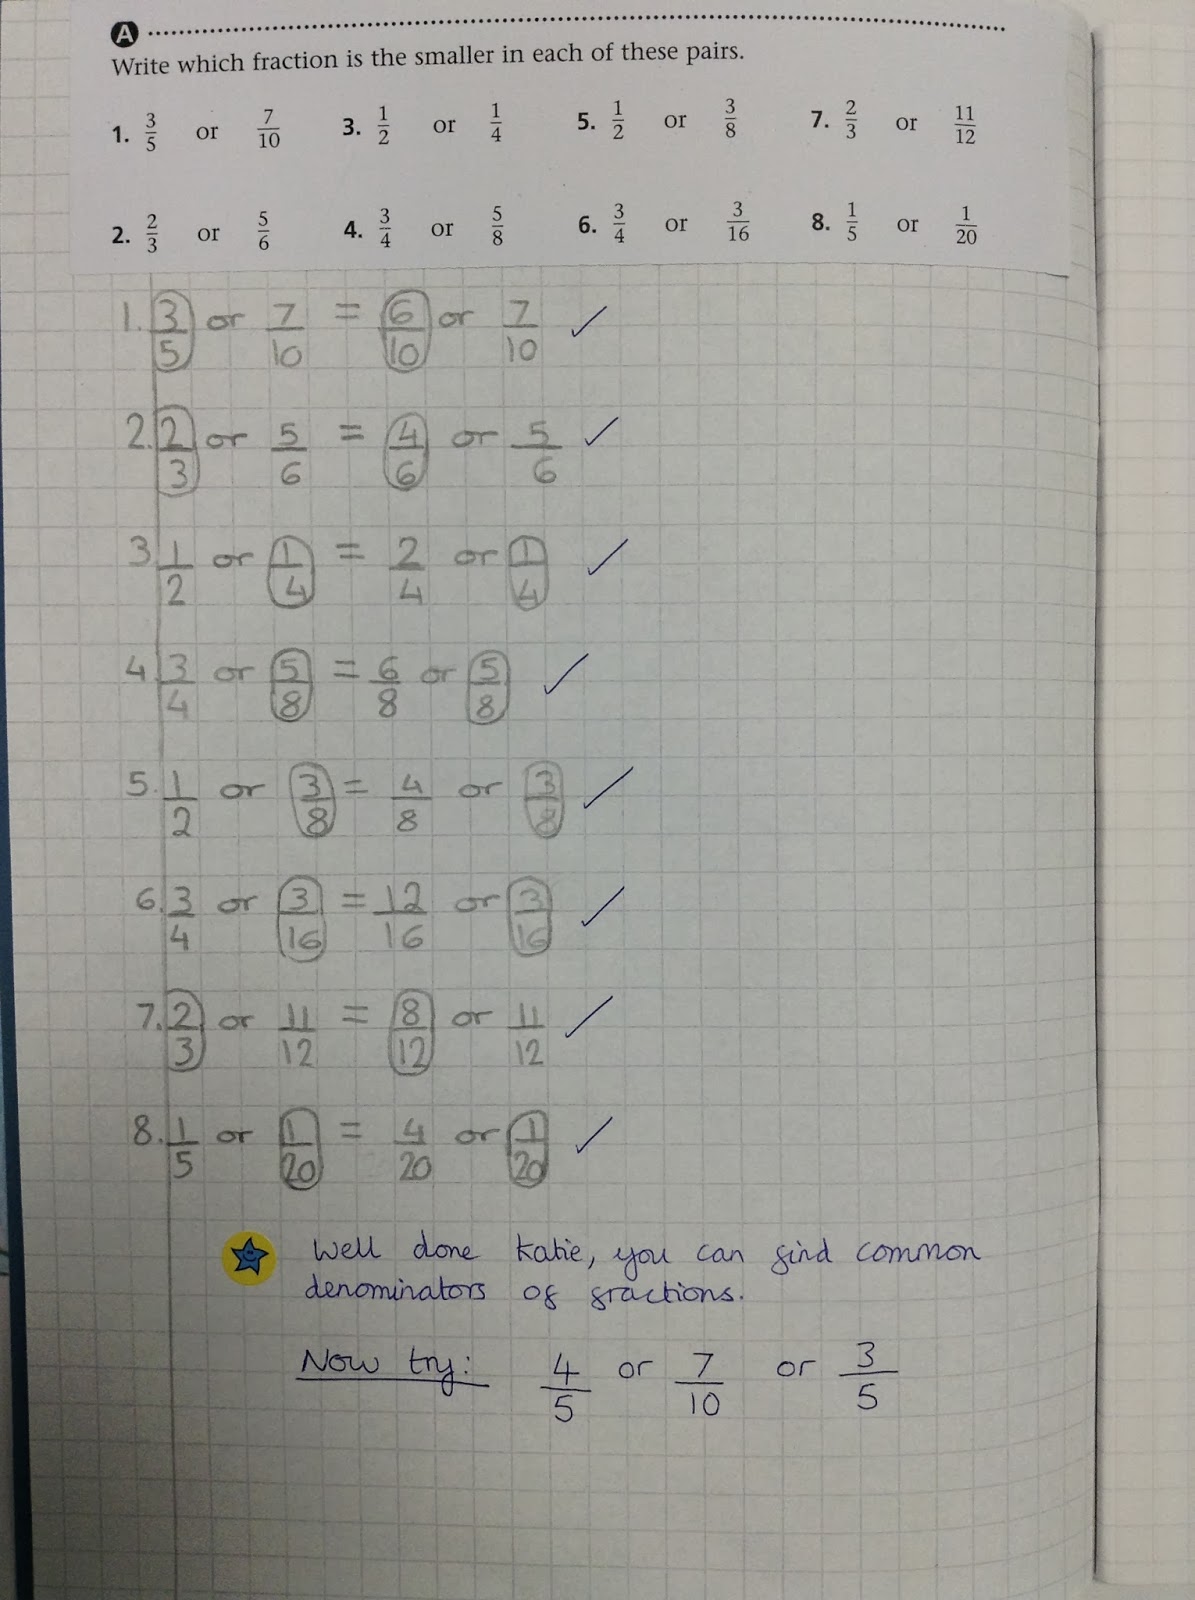 A
Write which fraction is the smaller in each of these pairs.
1. 3/5 or 7/10 3. 1/2 or 1/4 5. 1/2 or 3/8 7. 2/3 or 11/12
2. 2/3 or 5/6 4. 3/4 or 5/8 6. 3/4 or 3/16 8. 1/5 or 1/20
1. 3/5 or 7/10 = 6/10 or 7/10 ✓
2. 2/3 or 5/6 = 4/6 or 5/6 ✓
3 1/2 or 1/4 = 2/4 or 1/4 ✓
4. 3/4 or 5/8 = 6/8 or 5/8 ✓
5. 1/2 or 3/8 = 4/8 or 3/8 ✓
6. 3/4 or 3/16 = 12/16 or 3/16 ✓
7. 2/3 or 11/12 = 8/12 or 11/12 ✓
8. 1/5 or 1/20 = 4/20 or 1/20 ✓
Well done Katie, you can find common
denominators of fractions.
Now try: 4/5 or 7/10 or 3/5